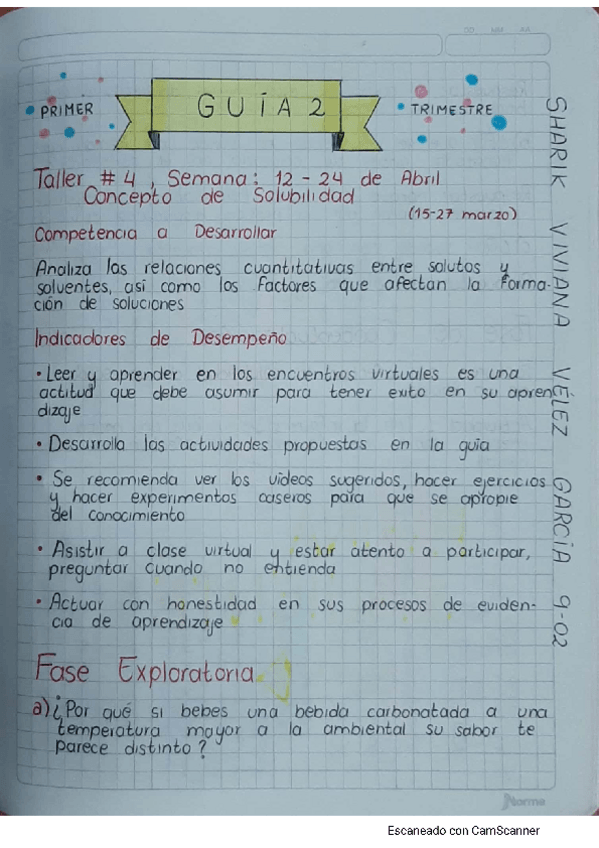 PRIMER
GUÍA 2
TRIMESTRE
Taller # 4, Semana: 12 - 24 de Abril
Concepto de Solubilidad
(15-27 marzo)
Competencia a Desarrollar
Analiza las relaciones cuantitativas entre solutos y
solventes, así como los factores que afectan la forma-
ción de soluciones
Indicadores de Desempeño
• Leer y aprender en los encuentros virtuales es una
actitud que debe asumir para tener exito en su apren-
dizaje
• Desarrolla las actividades propuestas en la guía
• Se recomienda ver los videos sugeridos, hacer ejercicios
y hacer experimentos caseros para que se apropie
del conocimiento
• Asistir a clase virtual y estar atento a participar,
preguntar cuando no entienda
• Actuar con honestidad en sus procesos de eviden-
cia de aprendizaje
Fase Exploratoria
a) ¿Por qué si bebes una bebida carbonatada a una
temperatura mayor a la ambiental su sabor te
parece distinto?
SHARIK VIVIANA VÉLEZ GARCÍA 9-02
Norma
Escaneado con CamScanner